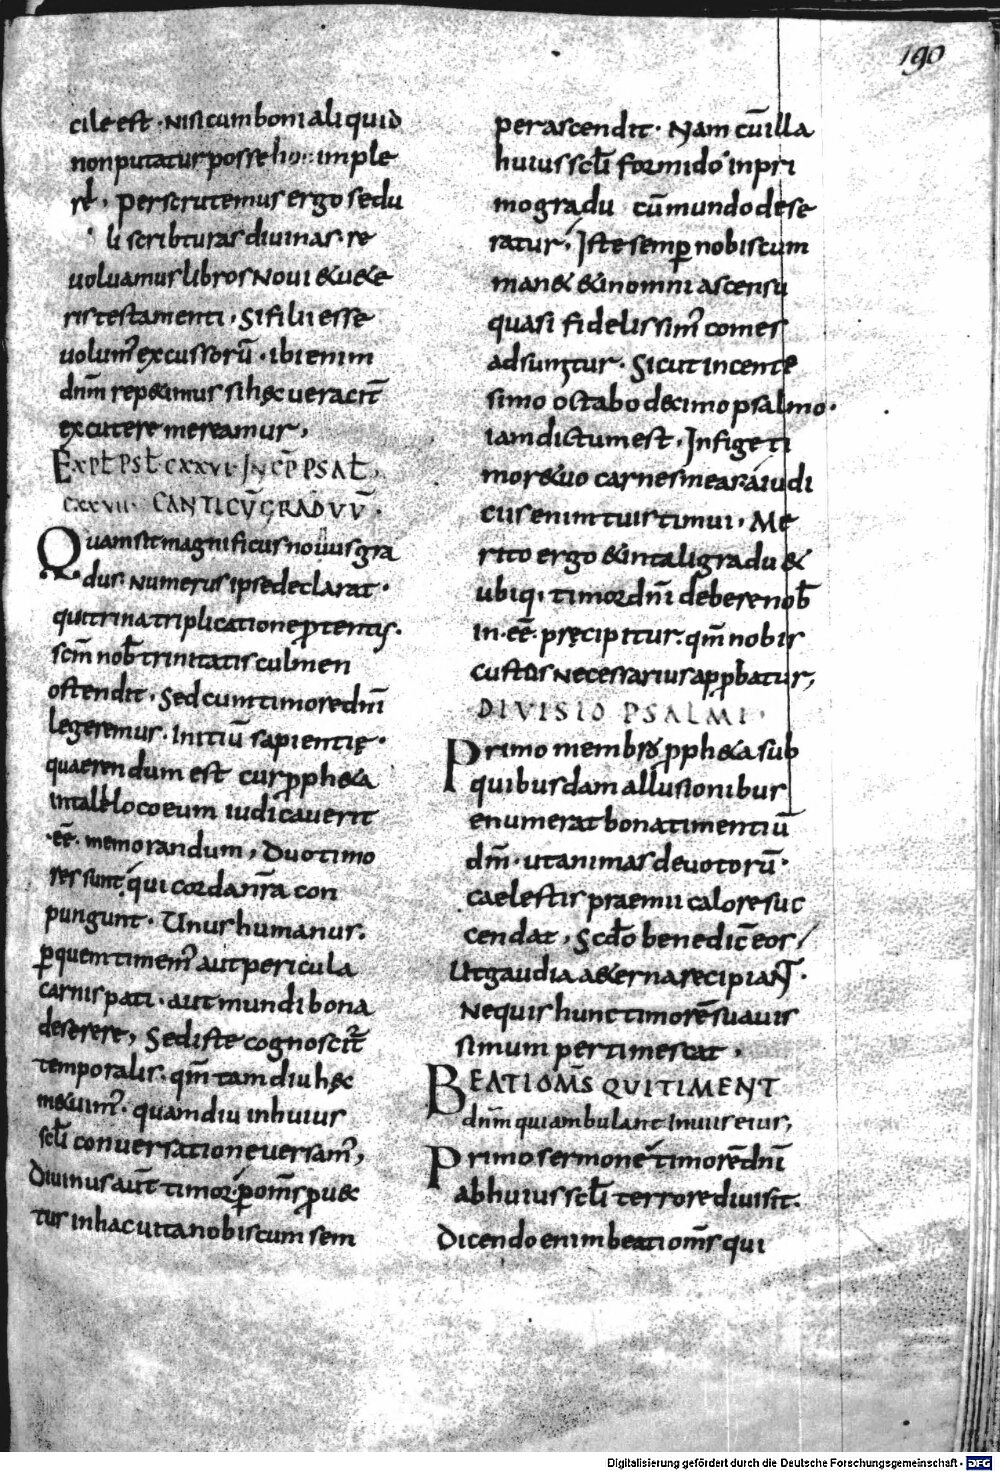 190
cile est · nisi cum boni aliquid
non putatur posse ho · imple
r&, perscrutemus ergo sedu
li scribturas divinas · re
voluamus libros novi & ue&e
ris testamenti · Si filii esse
volum' excussorū · ibi enim
dnm̄ rep&imus si hęc veracit̄
excutere mereamur,
EXPŁ PSŁ CXXVI · INCP̄ PSAŁ,
CXXVII · CANTICŪ GRADUŪ ·
Quam sit magnificus novus gra
dus · numerus ipse declarat ·
qui trina triplicatione p̄tentis ·
scm̄ nob̄ trinitatis culmen
ostendit · Sed cum timore dnī
legeremus · initiū sapientię ·
quaerendum est cur pph&a
in tali loco eum iudicaverit
· eē · memorandum, Duo timo
res sunt · qui corda nr̄a con
pungunt · Unus humanus ·
p̱ quem timem' aut pericula
carnis pati · aut mundi bona
deserere, Sed iste cognoscit̄
temporalis · qm̄ tamdiu hęc
m&uim' · quamdiu in huius
scłi conversatione versam',
Divinus aut̄ timor · p̱ om̄s pvec
tus in hac vita nobiscum sem
per ascendit · Nam cū illa
huius scłi formido in pri
mo gradu cū mundo dese
ratur, Iste semp̱ nobiscum
man& & in omni ascensu
quasi fidelissim' comes
adiungitur · Sicut in cente
simo octabo decimo psalmo ·
iam dictum est · Infige ti
mor&uo carnes meas a iudi
ciis enim tuis timui · Me
rito ergo & in tali gradu &
ubiq; timor dnī debere nob̄
in · eē · pręcipitur · qm̄ nobis
custos necessarius apprbatur,
DIVISIO PSALMI ·
Primo membro pph&a sub
quibusdam allusionibus
enumerat bona timentiū
dm̄ · ut animas devotorū ·
caelestis praemii calore suc
cendat, Scdo benedic̄ eos,
Ut gaudia a&erna recipiant ·
Ne quis hunc timorē suavis
simum pertimescat ·
BEATI OMS̄ QUI TIMENT
dnm̄ qui ambulant in viis eius,
Primo sermone timorē dnī
ab huius scłi terrore divisit ·
Dicendo enim beati om̄s qui
Digitalisierung gefördert durch die Deutsche Forschungsgemeinschaft · DFG